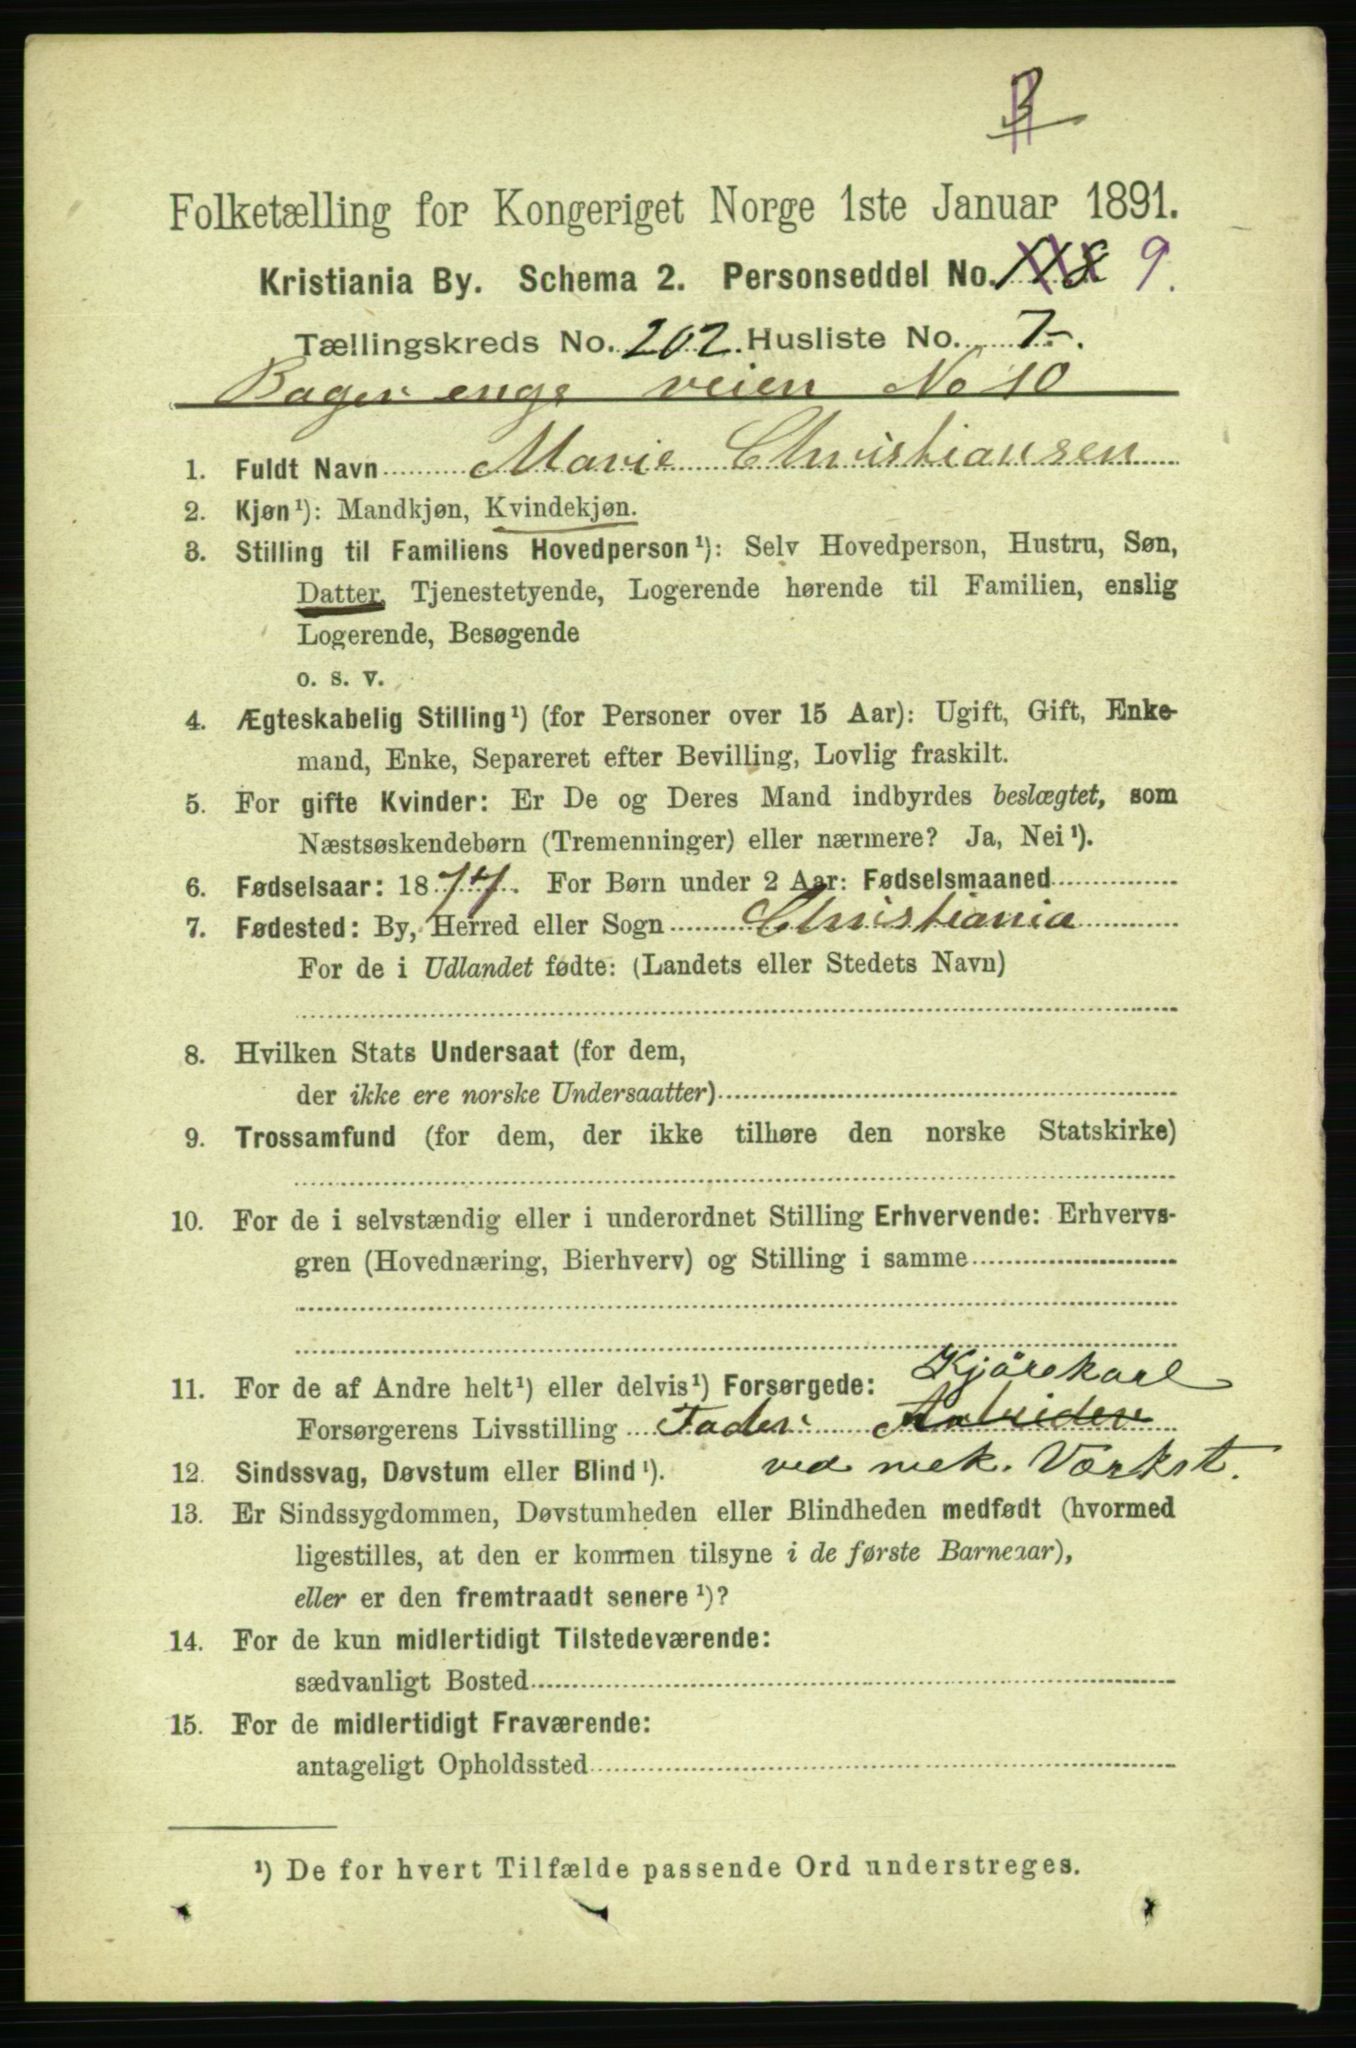 Folketælling for Kongeriget Norge 1ste Januar 1891.
Kristiania By. Schema 2. Personseddel No. 9.
Tællingskreds No. 202. Husliste No. 7-.
Bager enge veien No 10
1. Fuldt Navn Marie Christiansen
2. Kjøn¹): Mandkjøn, Kvindekjøn.
3. Stilling til Familiens Hovedperson¹): Selv Hovedperson, Hustru, Søn,
Datter, Tjenestetyende, Logerende hørende til Familien, enslig
Logerende, Besøgende
o. s. v.
4. Ægteskabelig Stilling¹) (for Personer over 15 Aar): Ugift, Gift, Enke-
mand, Enke, Separeret efter Bevilling, Lovlig fraskilt.
5. For gifte Kvinder: Er De og Deres Mand indbyrdes beslægtet, som
Næstsøskendebørn (Tremenninger) eller nærmere? Ja, Nei¹).
6. Fødselsaar: 1877. For Børn under 2 Aar: Fødselsmaaned
7. Fødested: By, Herred eller Sogn Christiania
For de i Udlandet fødte: (Landets eller Stedets Navn)
8. Hvilken Stats Undersaat (for dem,
der ikke ere norske Undersaatter)
9. Trossamfund (for dem, der ikke tilhøre den norske Statskirke)
10. For de i selvstændig eller i underordnet Stilling Erhvervende: Erhvervs-
gren (Hovednæring, Bierhverv) og Stilling i samme
Kjörekarl
11. For de af Andre helt¹) eller delvis¹) Forsørgede:
Forsørgerens Livsstilling Fader Arbeider
ved mek. Værkst.
12. Sindssvag, Døvstum eller Blind¹).
13. Er Sindssygdommen, Døvstumheden eller Blindheden medfødt (hvormed
ligestilles, at den er kommen tilsyne i de første Barneaar),
eller er den fremtraadt senere¹)?
14. For de kun midlertidigt Tilstedeværende:
sædvanligt Bosted
15. For de midlertidigt Fraværende:
antageligt Opholdssted
¹) De for hvert Tilfælde passende Ord understreges.